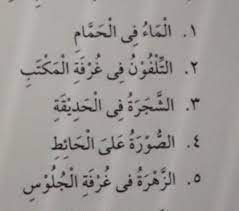 ١. الْمَاءُ فِى الْحَمَّامِ
٢. التِّلْفُوْنُ فِى غُرْفَةِ الْمَكْتَبِ
٣. الشَّجَرَةُ فِى الْحَدِيْقَةِ
٤. الصُّوْرَةُ عَلىَ الْحَائِطِ
٥. الزَّهْرَةُ فِى غُرْفَةِ الْجُلُوْسِ